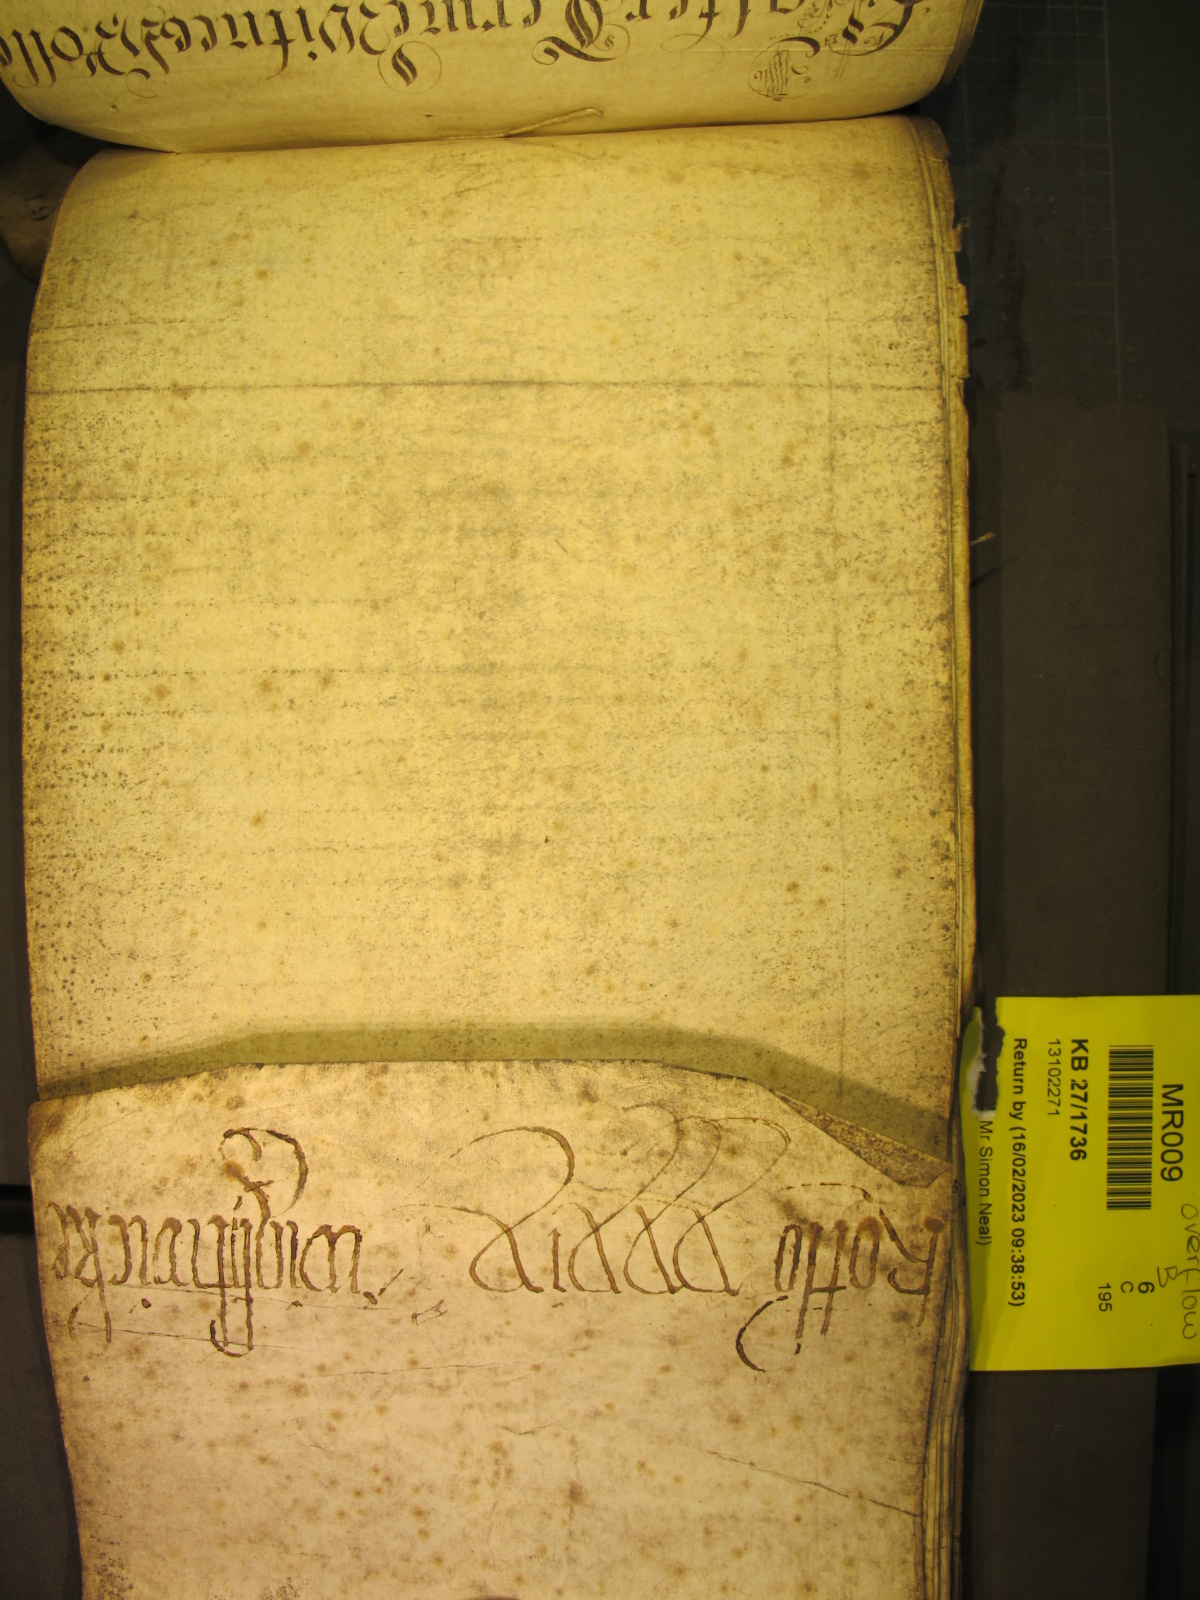 Easter Terme Witnes Rolle
Rotlo xxxix Wightwicke
MR009
KB 27/1736
13102271
Return by (16/02/2023 09:38:53)
Mr Simon Neal)
6
C
195
overflow
B